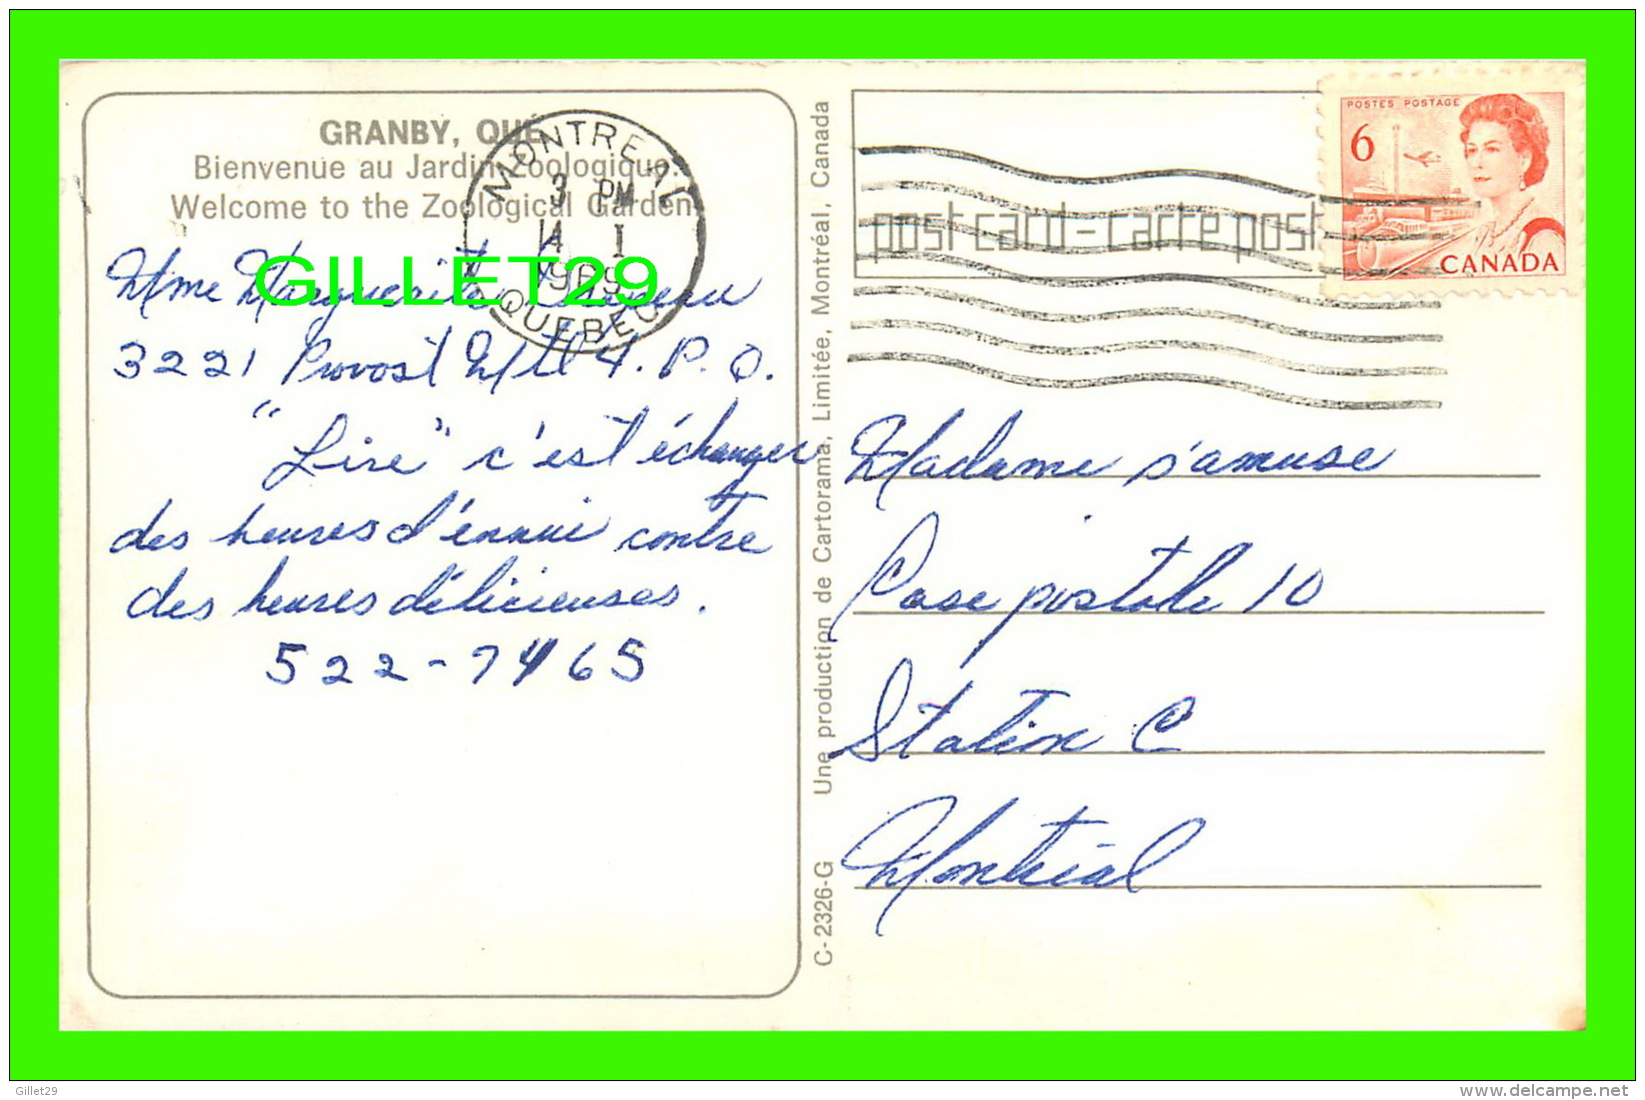 GRANBY, QUE.
Bienvenue au Jardin Zoologique.
Welcome to the Zoological Garden.
MONTREAL
3 PM
14 I
1969
QUEBEC
GILLET29
Mme Marguerite
3221 Provost Mtl 4. P. Q.
"Lire" c'est échanger
des heures d'ennui contre
des heures délicieuses.
522-7465
C-2326-G Une production de Cartorama, Limitée, Montréal, Canada
post card-carte post
POSTES POSTAGE
6
CANADA
Madame s'amuse
Case postale 10
Station C
Montréal
Gillet29
www.delcampe.net